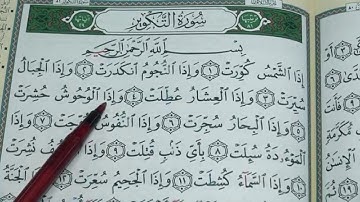 سُورَةُ التَّكْوِيرِ
بِسْمِ اللَّهِ الرَّحْمَٰنِ الرَّحِيمِ
إِذَا الشَّمْسُ كُوِّرَتْ ١ وَإِذَا النُّجُومُ انكَدَرَتْ ٢ وَإِذَا الْجِبَالُ
سُيِّرَتْ ٣ وَإِذَا الْعِشَارُ عُطِّلَتْ ٤ وَإِذَا الْوُحُوشُ حُشِرَتْ
٥ وَإِذَا الْبِحَارُ سُجِّرَتْ ٦ وَإِذَا النُّفُوسُ زُوِّجَتْ ٧ وَإِذَا
الْمَوْءُودَةُ سُئِلَتْ ٨ بِأَيِّ ذَنبٍ قُتِلَتْ ٩ وَإِذَا الصُّحُفُ نُشِرَتْ
١٠ وَإِذَا السَّمَاءُ كُشِطَتْ ١١ وَإِذَا الْجَحِيمُ سُعِّرَتْ ١٢ وَإِذَا الْجَنَّةُ